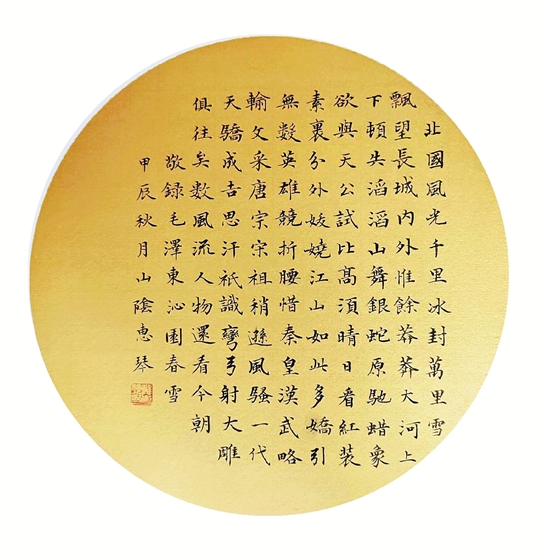 北國風光千里冰封萬里雪
飄望長城内外惟餘莽莽大河上
下頓失滔滔山舞銀蛇原馳蜡象
欲與天公試比高須晴日看紅装
素裹分外妖嬈江山如此多嬌引
無数英雄競折腰惜秦皇漢武略
輸文采唐宗宋祖稍遜風騷一代
天驕成吉思汗祇識彎弓射大雕
俱往矣数風流人物還看今朝
敬録毛澤東沁園春雪
甲辰秋月山陰惠琴